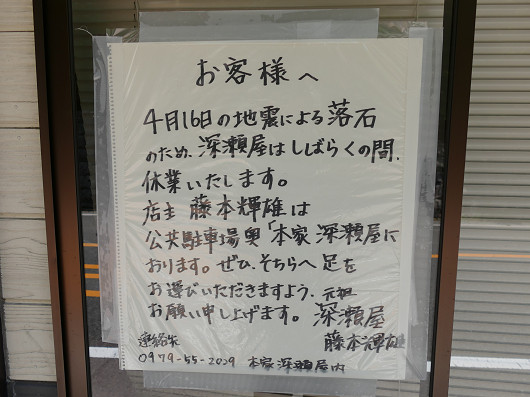 お客様へ
4月16日の地震による落石
のため、深瀬屋はしばらくの間、
休業いたします。
店主 藤本輝雄は
公共駐車場奥「本家 深瀬屋に
おります。ぜひ、そちらへ 足を
お運びいただきますよう、
お願い申し上げます。
元祖
深瀬屋
藤本輝雄
連絡先
0979-55-2009 本家 深瀬屋内